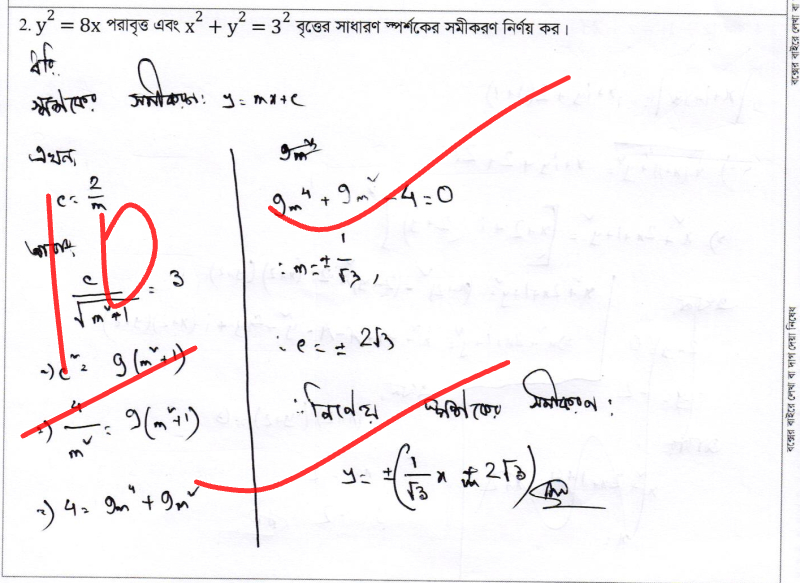 2. y² = 8x পরাবৃত্ত এবং x² + y² = 3² বৃত্তের সাধারণ স্পর্শকের সমীকরণ নির্ণয় কর।
ধরি,
স্পর্শকের সমীকরণ: y = mx + c
এখন,
c = 2/m
আবার,
c/√(m²+1) = 3
⇒ c² = 9(m²+1)
⇒ 4/m² = 9(m²+1)
⇒ 4 = 9m⁴ + 9m²
9m⁴ + 9m² - 4 = 0
∴ m = ± 1/√3,
∴ c = ± 2√3
∴ নির্ণেয় স্পর্শকের সমীকরণ:
y = ±(1/√3 x + 2√3)
বক্সের বাইরে লেখা বা দাগ দেয়া নিষেধ
বক্সের বাইরে লেখা বা